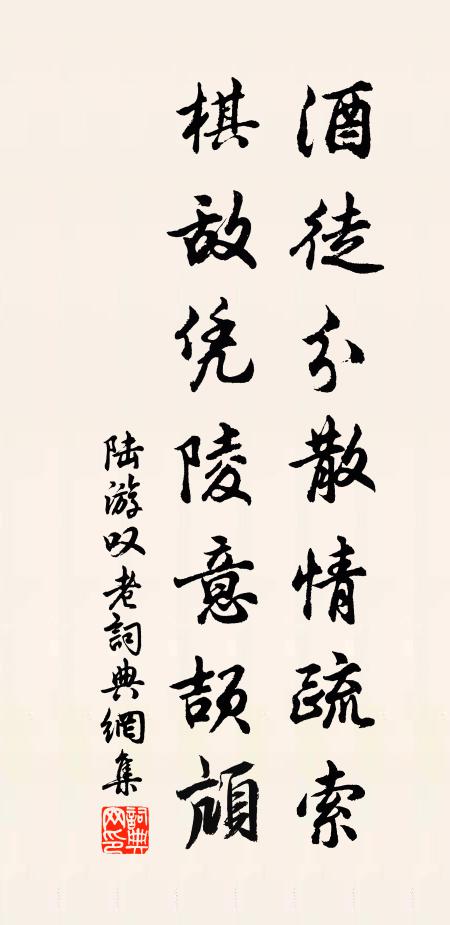 酒徒分散情疏索
棋敌凭陵意颉颃
陆游叹老詞典網集
詞典网印